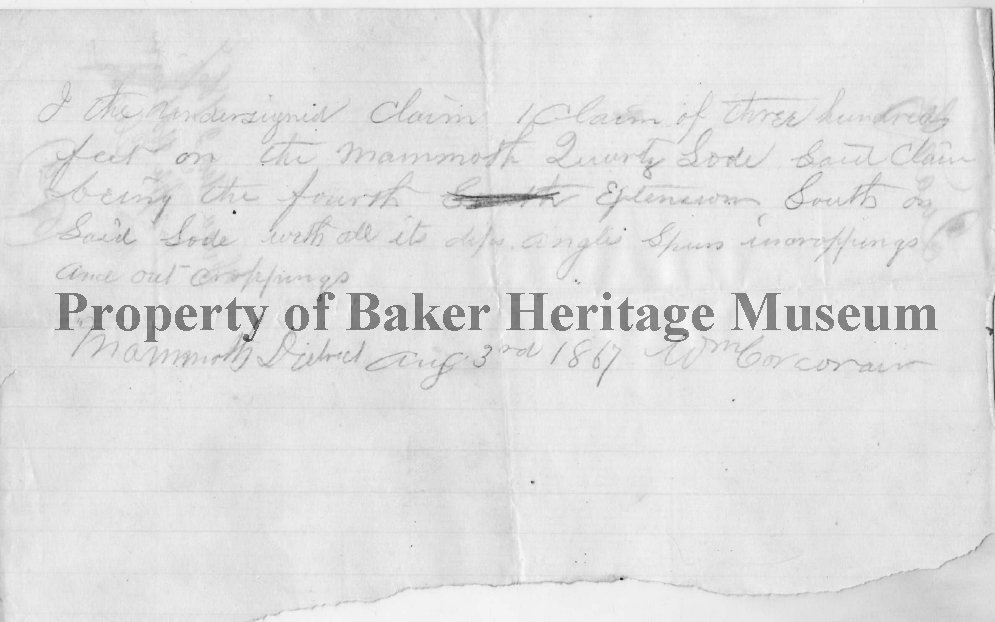 I the undersignid Claim 1 Claim of three hundred
feet on the Mammoth Quartz Lode Said Claim
being the fourth Extension South on
Said Lode with all its dips angls Spurs incroppings
and out croppings
Property of Baker Heritage Museum
Mammoth District Aug 3rd 1867 Wm Corcorain